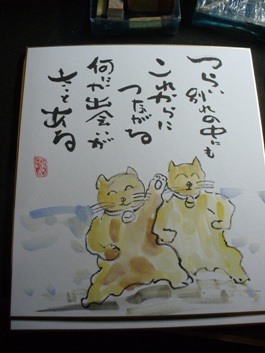 つらい別れの中にも
これからに
つながる
何か出会いが
きっとある